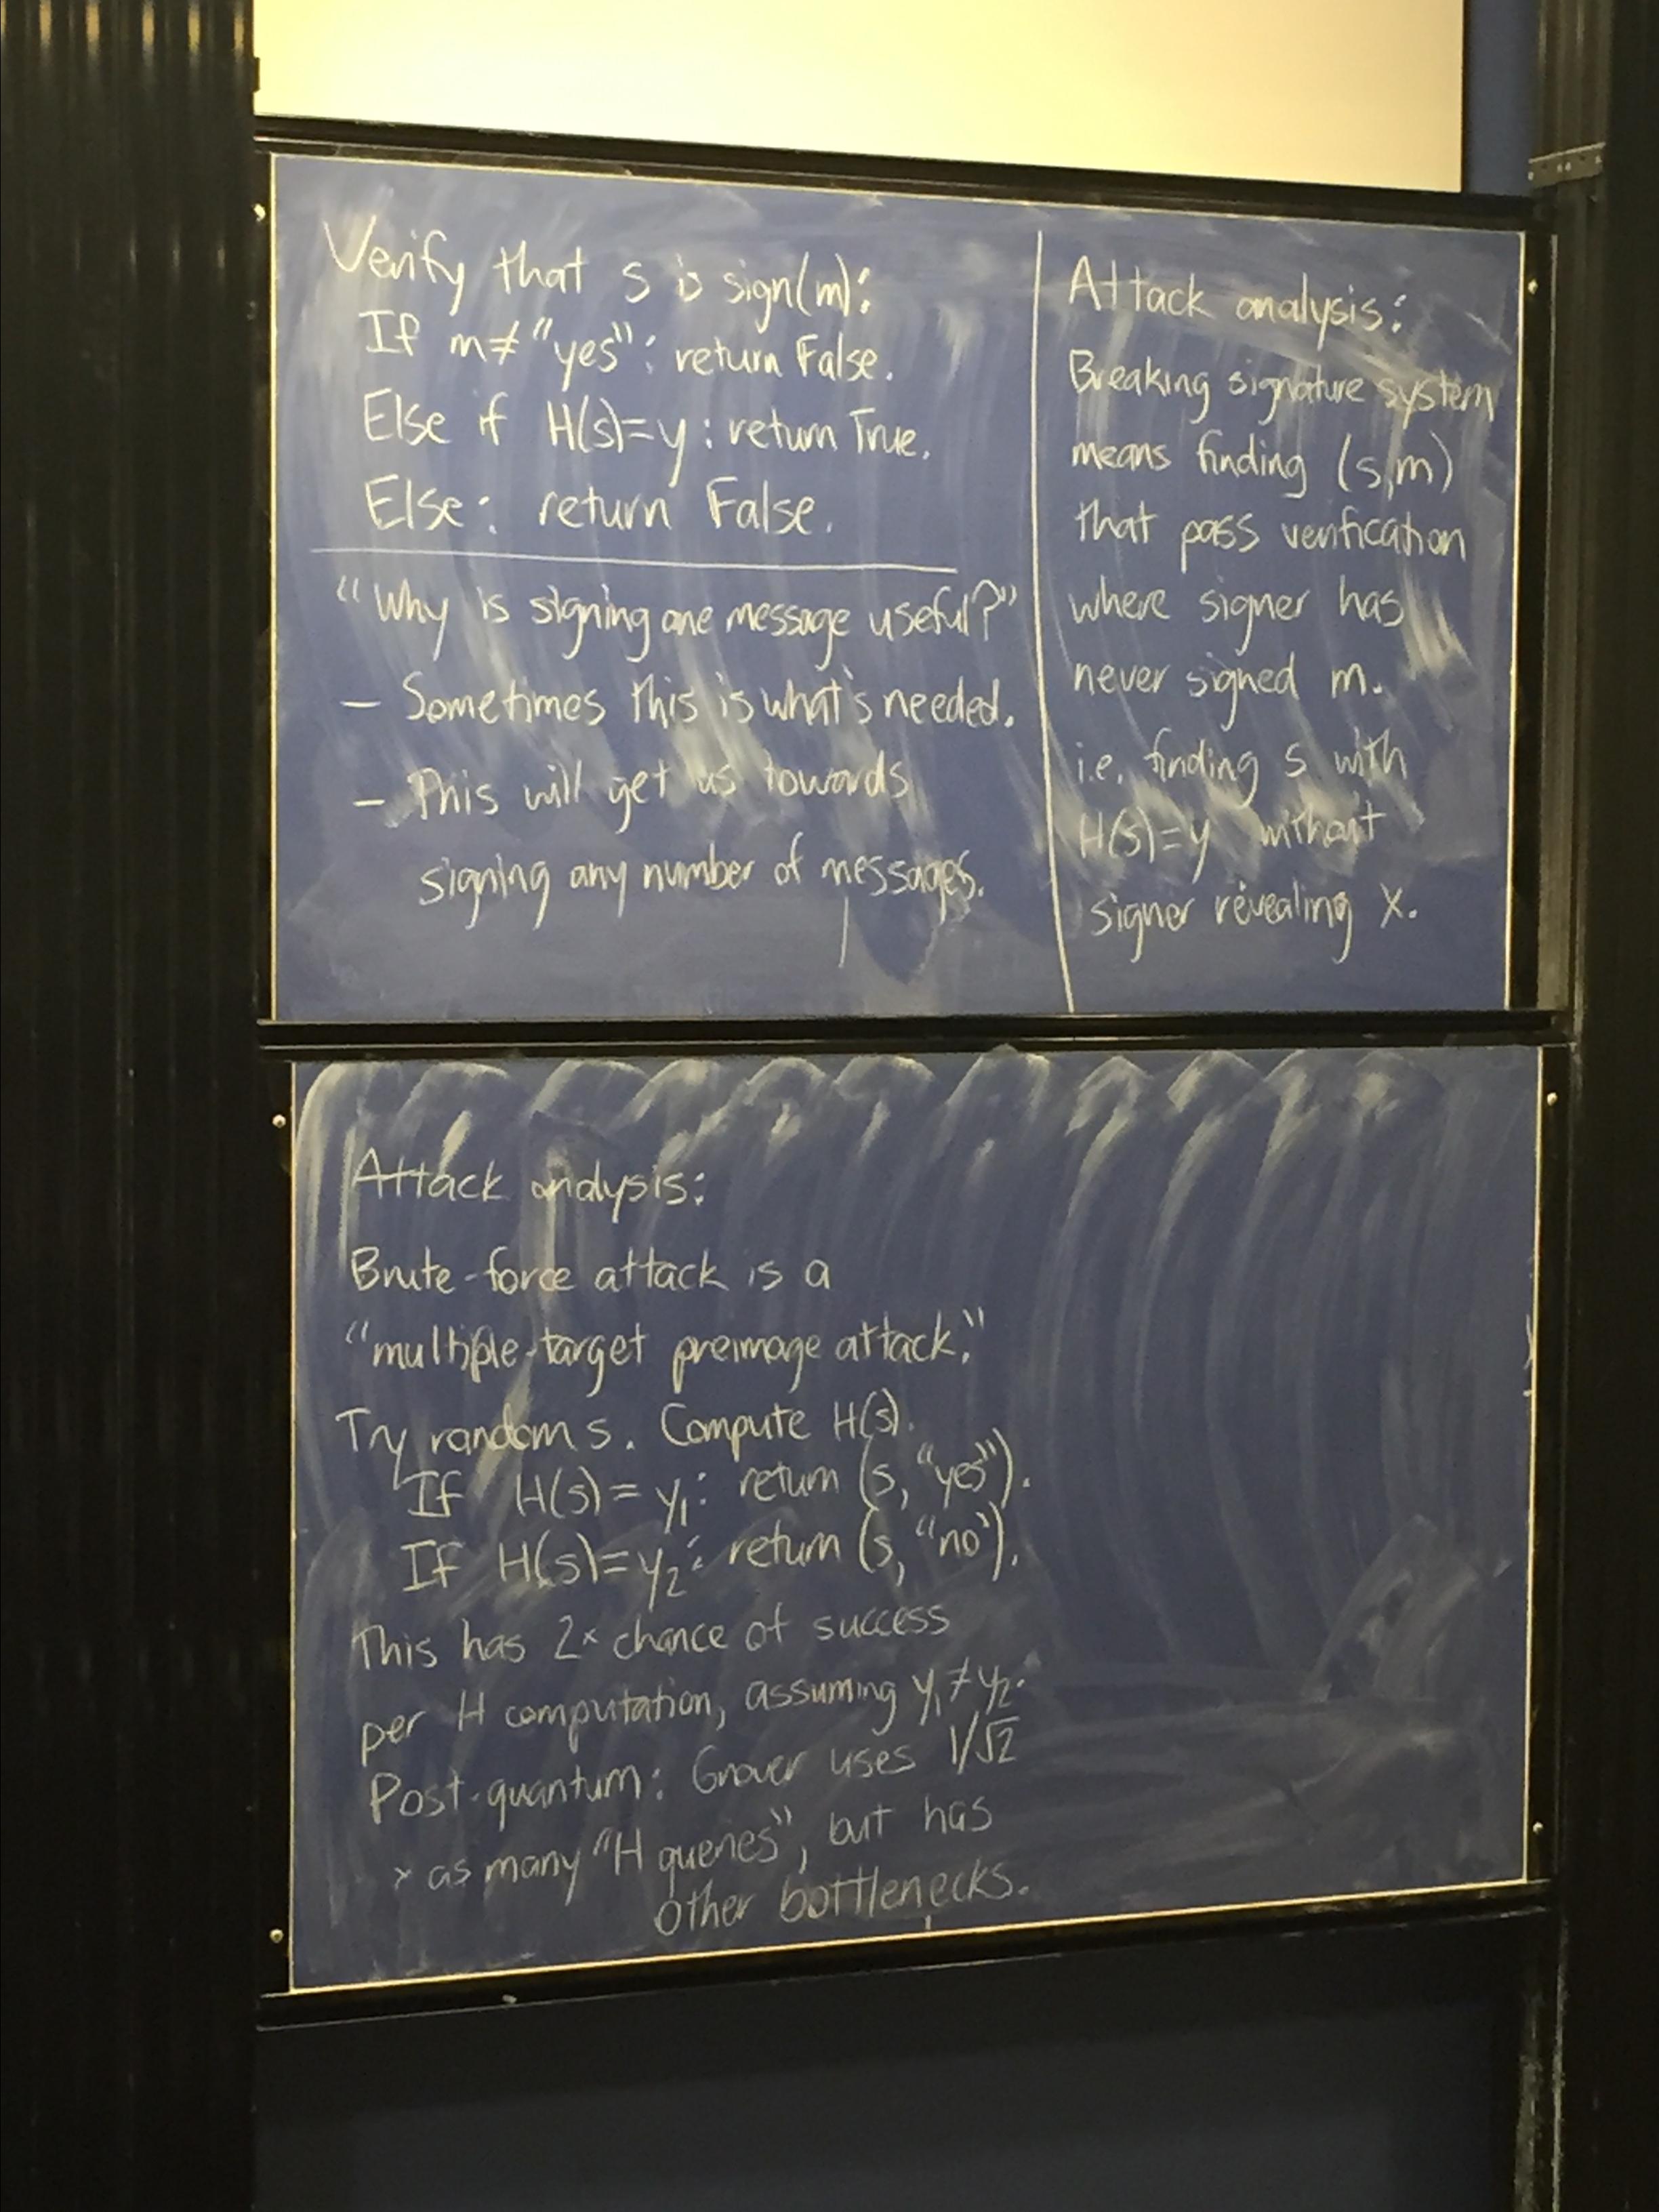 Verify that s is sign(m):
If m≠"yes": return False.
Else if H(s)=y: return True.
Else: return False.
"Why is signing one message useful?"
— Sometimes this is what's needed.
— This will get us towards
signing any number of messages.
Attack analysis:
Breaking signature system
means finding (s,m)
that pass verification
where signer has
never signed m.
i.e. finding s with
H(s)=y without
signer revealing x.
Attack analysis:
Brute-force attack is a
"multiple-target preimage attack."
Try random s. Compute H(s).
If H(s)=y₁: return (s, "yes").
If H(s)=y₂: return (s, "no").
This has 2× chance of success
per H computation, assuming y₁≠y₂.
Post-quantum: Grover uses 1/√2
× as many "H queries", but has
other bottlenecks.